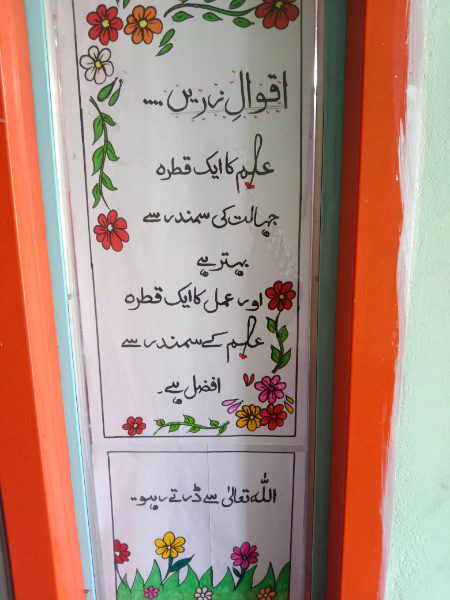 اقوالِ زریں ....
علم کا ایک قطرہ
جہالت کی سمندر سے
بہتر ہے
اور عمل کا ایک قطرہ
علم کے سمندر سے
افضل ہے۔
اللہ تعالیٰ سے ڈرتے رہو..